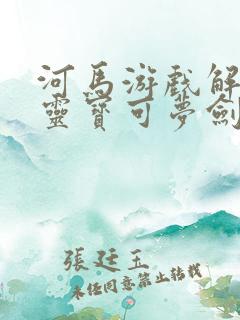 河馬游戲解
靈寶可夢劍
張廷玉
未經同意禁止轉載